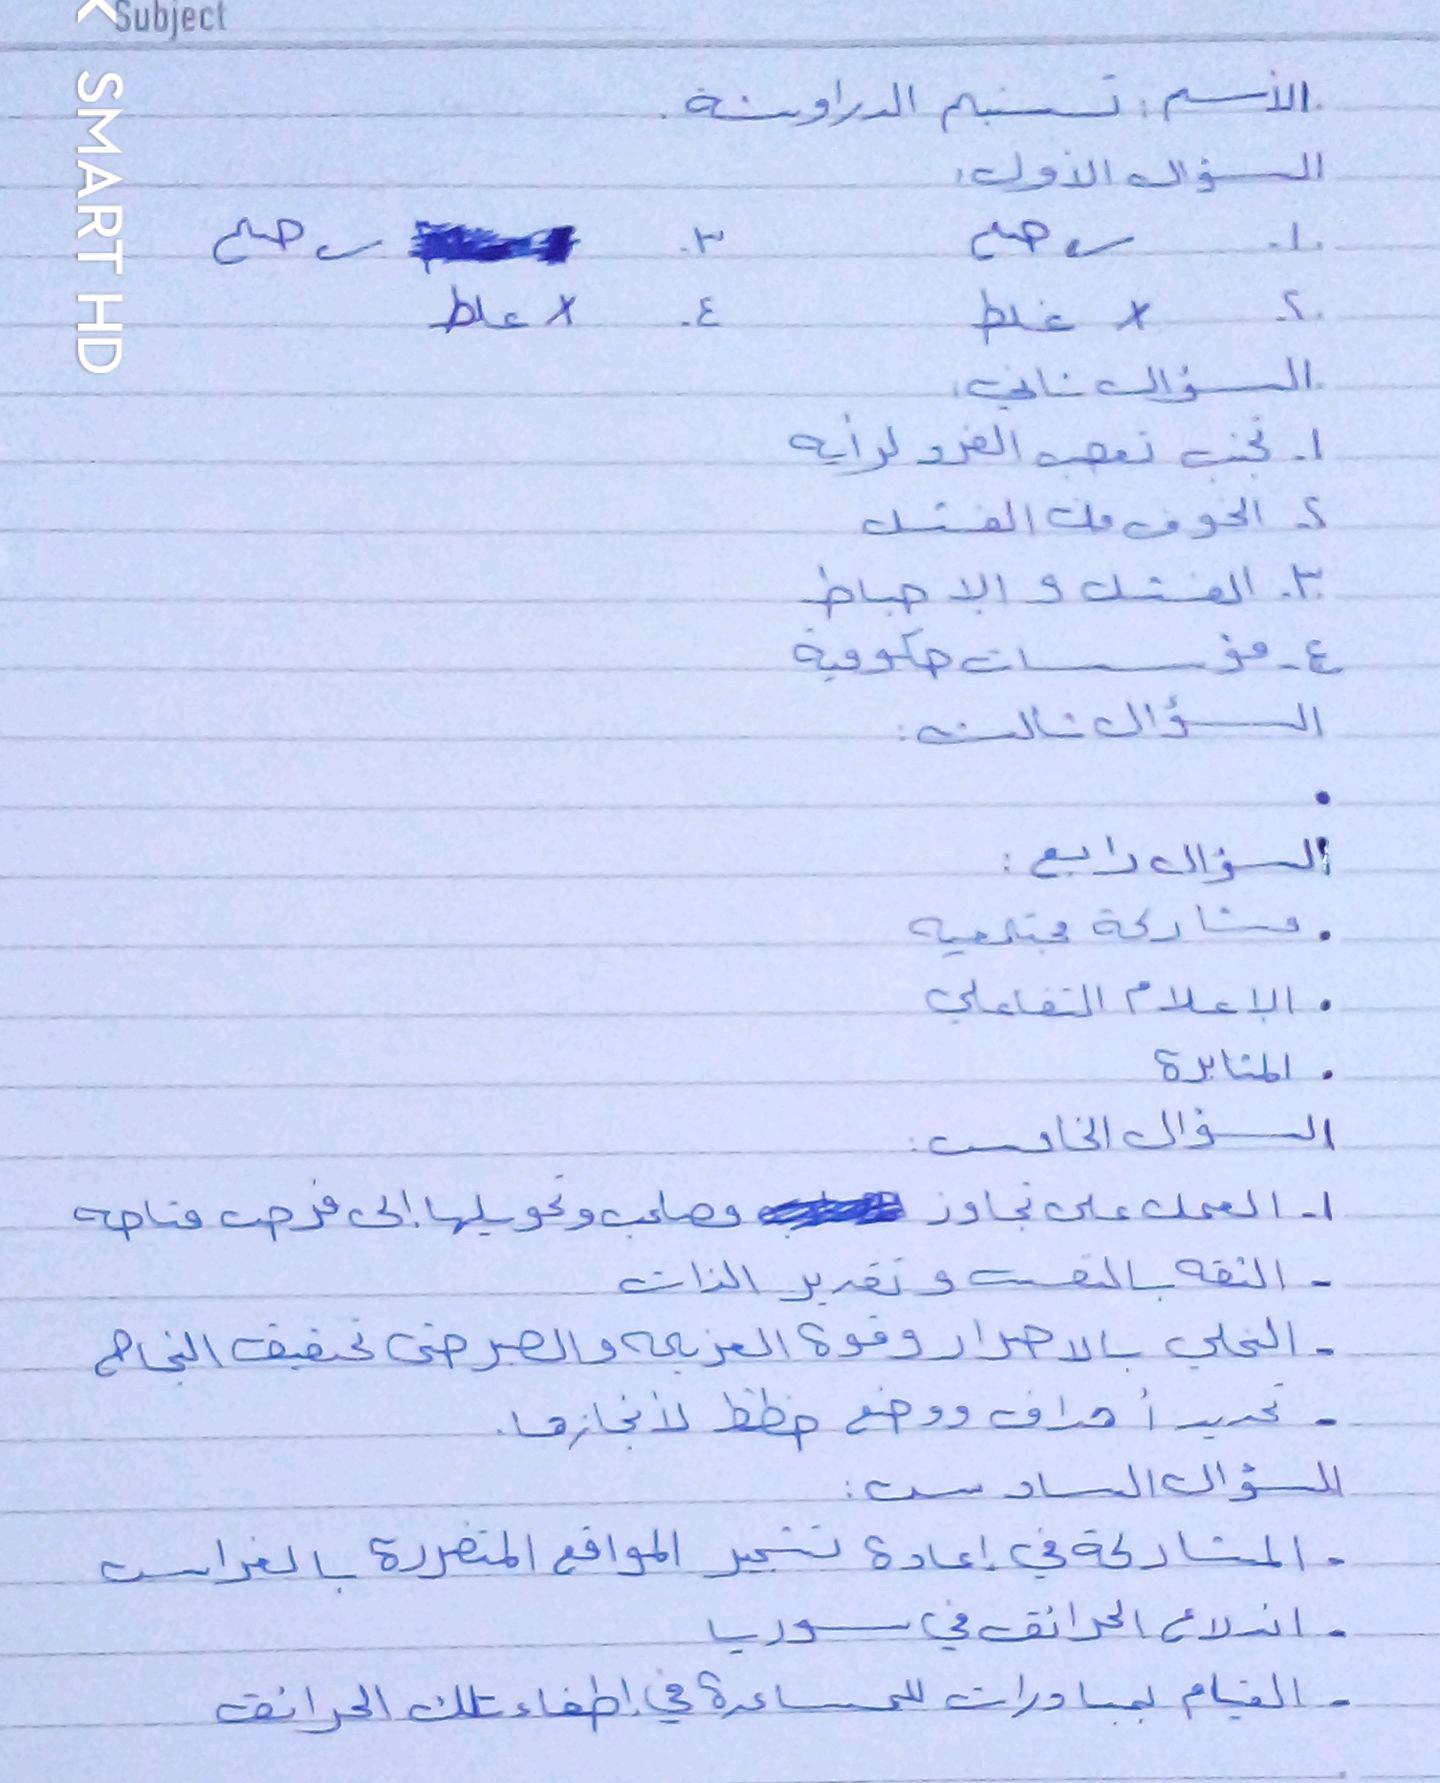 Subject
SMART HD
الأسم: تسنيم الدراوشة.
السؤال الأول:
١. ✓ صح ٣. ✓ صح
٢. × غلط ٤. × غلط
السؤال ثاني:
١. تجنب تعصب الفرد لرأيه
٢. الخوف من الفشل
٣. الفشل و الاحباط
٤. مؤسسات حكومية
السؤال ثالث:
•
السؤال رابع:
• مشاركة مجتمعيه
• الإعلام التفاعلي
• المثابرة
السؤال الخامس:
١- العمل على تجاوز مصاعب وتحويلها إلى فرص متاحه
- الثقه بالنفس و تقدير الذات
- التحلي بالاصرار وقوة العزيمه والصبر حتى تحقيق النجاح
- تحديد أهداف ووضع خطط لأنجازها.
السؤال السادس:
- المشاركة في إعادة تشجير المواقع المتضررة بالغراس
- اندلاع الحرائق في سوريا
- القيام بمبادرات للمساعدة في إطفاء تلك الحرائق